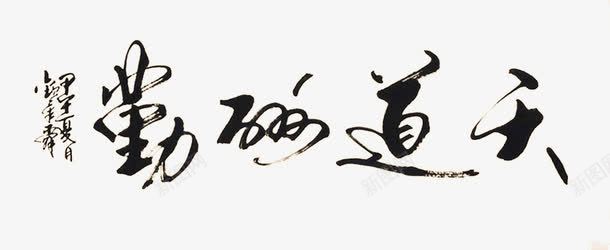 天道酬勤
甲午夏月
新图网